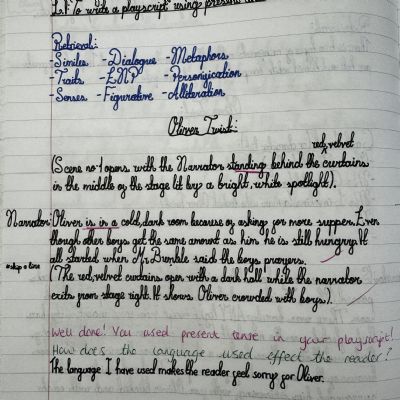 L.F To write a playscript using present
Retrieval:
-Similes -Dialogue -Metaphors
-Traits -ENP -Personification
-Senses -Figurative -Alliteration
Oliver Twist:
red, velvet
(Scene no.1 opens with the Narrator standing behind the curtains
in the middle of the stage lit by a bright, white spotlight).
Narrator: Oliver is in a cold, dark room because of asking for more supper. Even
though other boys get the same amount as him he is still hungry. It
all started when Mr Bumble said the boys prayers.
*skip a line
(The red, velvet curtains open with a dark hall while the narrator
exits from stage right. It shows Oliver crowded with boys).
Well done! You used present tense in your playscript!
How does the language used effect the reader?
The language I have used makes the reader feel sorry for Oliver.